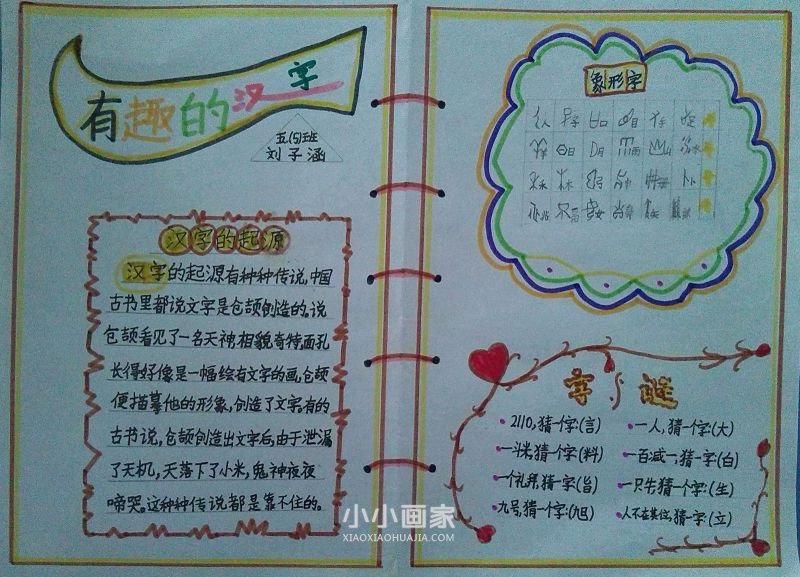 有趣的汉字
五(5)班
刘子涵
汉字的起源
汉字的起源有种种传说,中国
古书里都说文字是仓颉创造的。说
仓颉看见了一名天神,相貌奇特,面孔
长得好像是一幅绘有文字的画,仓颉
便描摹他的形象,创造了文字,有的
古书说,仓颉创造出文字后,由于泄漏
了天机,天落下了小米,鬼神夜夜
啼哭。这种种传说都是靠不住的。
象形字
字谜
2110,猜一个字:(言)
一斗米,猜一个字:(料)
一个礼拜,猜一字:(旨)
九号,猜一个字:(旭)
一人,猜一个字:(大)
一百减一,猜一字:(白)
一只牛,猜一个字:(生)
人不在其位,猜一字(立)
小小画家
XIAOXIAOHUAJIA.COM